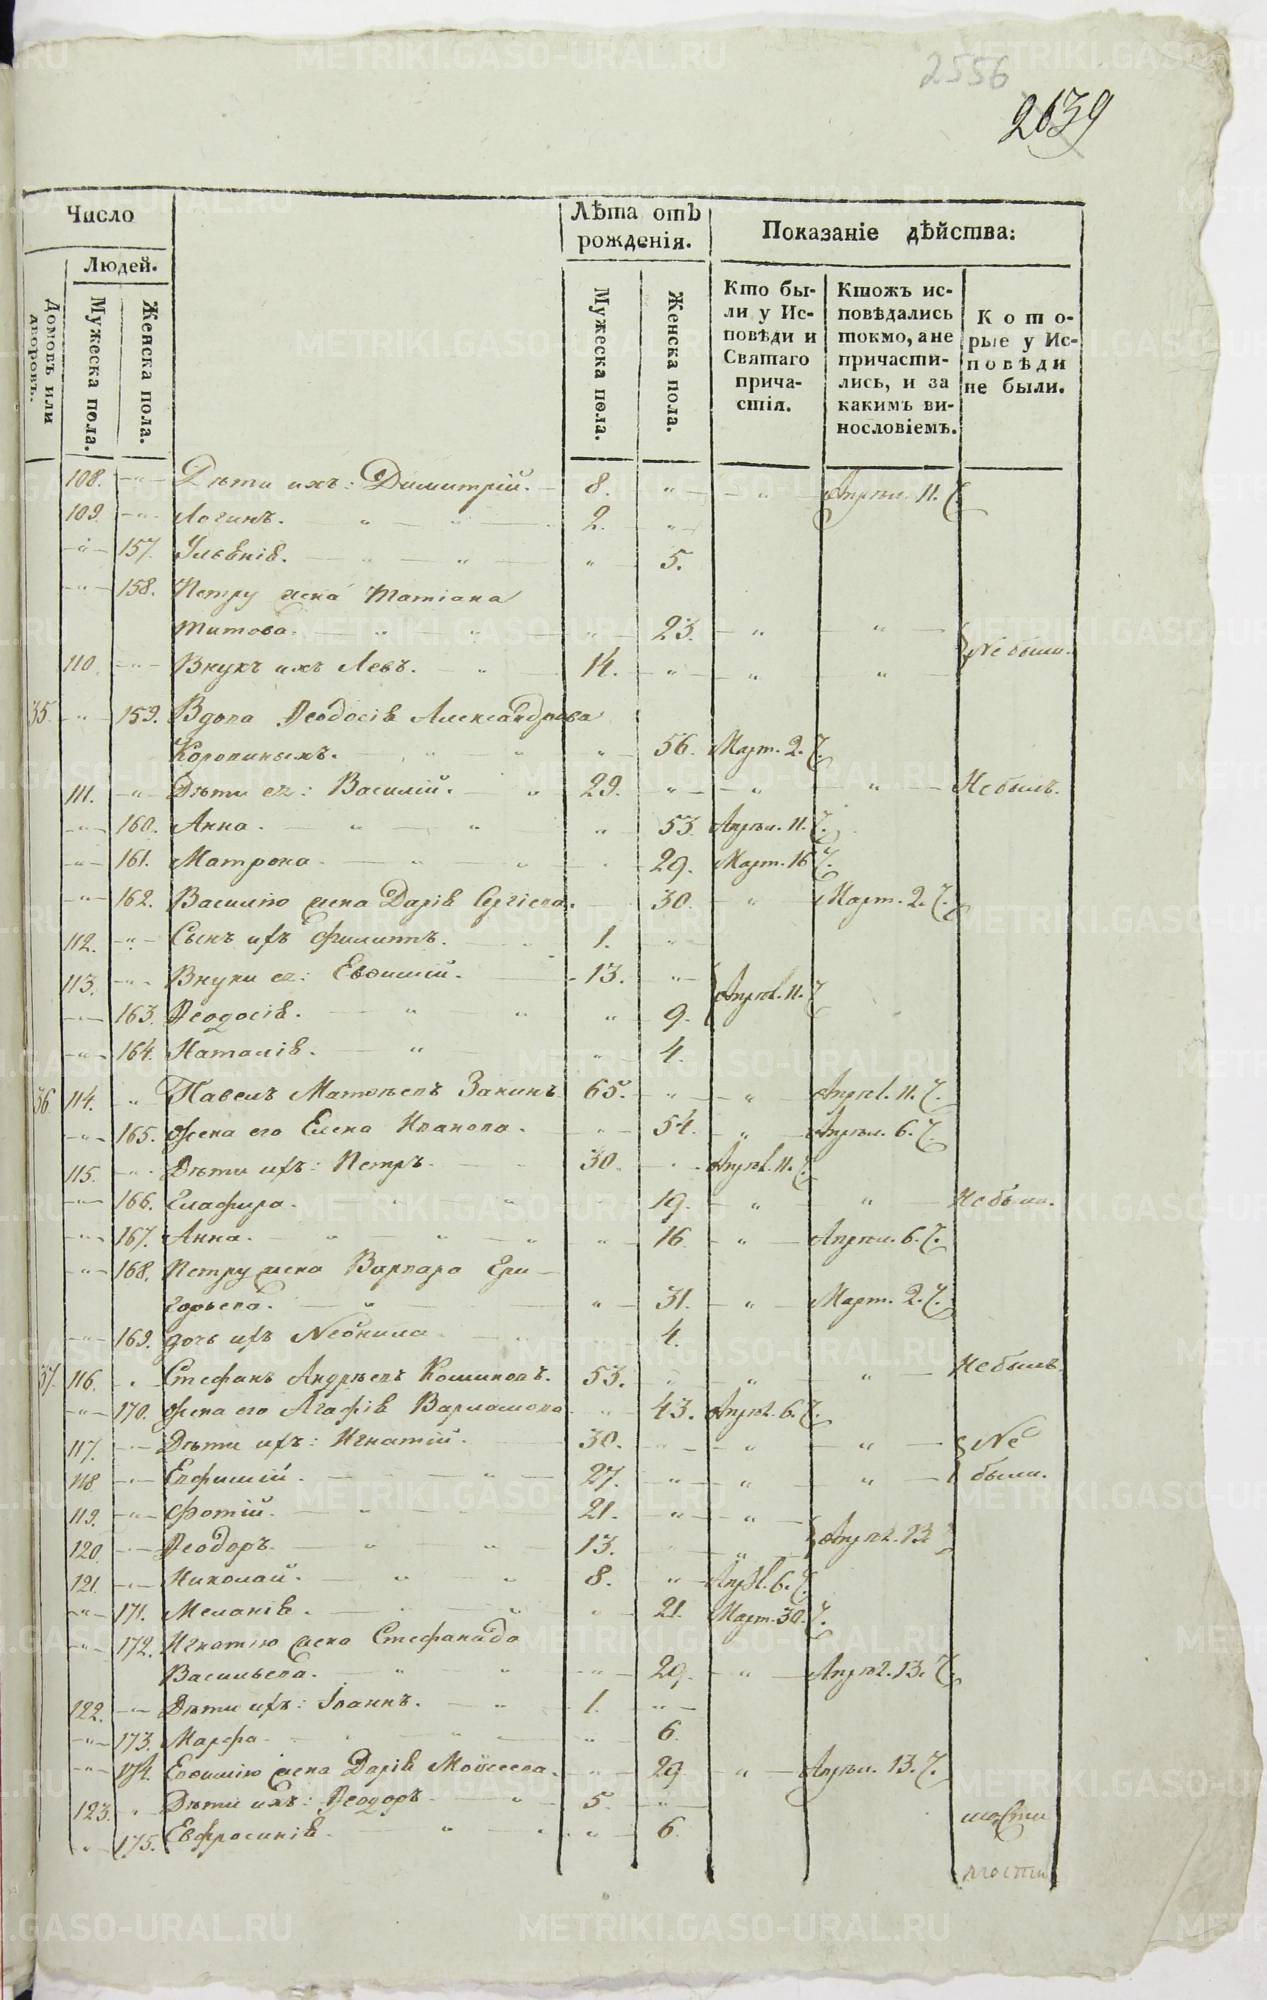 2556
2639
Число
Лѣта отъ рожденія.
Показаніе дѣйства:
Людей.
Домовъ или дворовъ.
Мужеска пола.
Женска пола.
Мужеска пола.
Женска пола.
Кто были у Исповѣди и Святаго причастія.
Ктожъ исповѣдались токмо, а не причастились, и за какимъ винословіемъ.
Которые у Исповѣди не были.
108. Дѣти ихъ: Димитрій. 8. Апрѣл. 11.
109. Логинъ. 2.
157. Ульянія. 5.
158. Петру жена Татіана
Титова. 23.
110 Внукъ ихъ Левъ. 14. Не были.
35. 159. Вдова Ѳеодосія Александрова
56. Март. 2.
111. Дѣти ея: Василій. 29. Не былъ.
160. Анна. 53. Апрѣл. 11.
161. Матрона. 29. Март. 16
162. Василію жена Дарія Сергіева. 30. Март. 2.
112. Сынъ ихъ Филиппъ. 1.
113. Внуки ея: Евѳимій. 13. Апрѣл. 11.
163. Ѳеодосія. 9.
164. Наталія. 4.
36 114. Павелъ Матѳѣевъ 65. Апрѣл. 11.
165. Жена его Елена Иванова. 54. Апрѣл. 6.
115. Дѣти ихъ: Петръ. 30. Апрѣл. 11.
166. Глафира. 19. Не была.
167. Анна. 16 Апрѣл. 6.
168. Петру жена Варвара Гри-
горьева. 31. Март. 2.
169. дочь ихъ Неонила 4.
37. 116. Стефанъ Андрѣевъ 53. Не былъ.
170. Жена его Агафія Варламова 43. Апрѣл. 6.
117. Дѣти ихъ: Игнатій. 30. Не
118 Евфимій. 27. были.
119. Фотій. 21.
120. Ѳеодоръ. 13. Апрѣл. 13
121. Николай. 8. Апрѣл. 6.
171. Меланія. 21. Март. 30.
172. Игнатію жена Стефанида
Васильева. 29. Апрѣл. 13.
122. Дѣти ихъ: Іоаннъ. 1.
173. Марфа 6.
174. Евѳимію жена Дарія Моѵсеева. 29 Апрѣл. 13.
123. Дѣти ихъ: Ѳеодоръ 5.
175. Евфросинія. 6.
METRIKI.GASO-URAL.RU